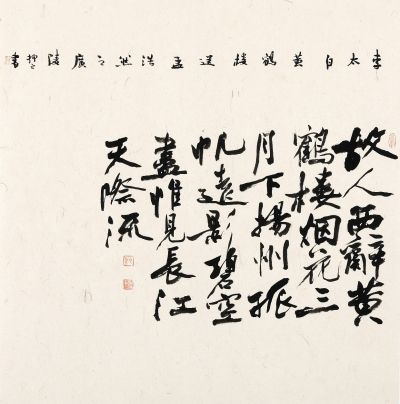 李太白黄鶴楼送孟浩然之廣陵書
故人西辭黄
鶴楼烟花三
月下揚州孤
帆遠影碧空
盡惟見長江
天際流